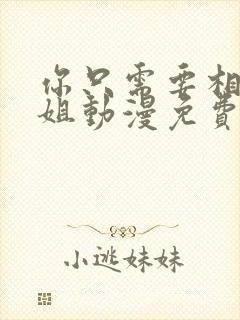 你只需要相
姐動漫免費
小逃妹妹